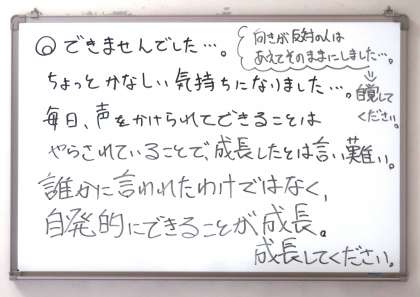 できませんでした…。
向きが反対の人は
あえてそのままにしました…。
⇓
自覚して
ください。
ちょっとかなしい気持ちになりました…。
毎日、声をかけられてできることは
やらされていることで、成長したとは言い難い。
誰かに言われたわけではなく、
自発的にできることが成長。
成長してください。